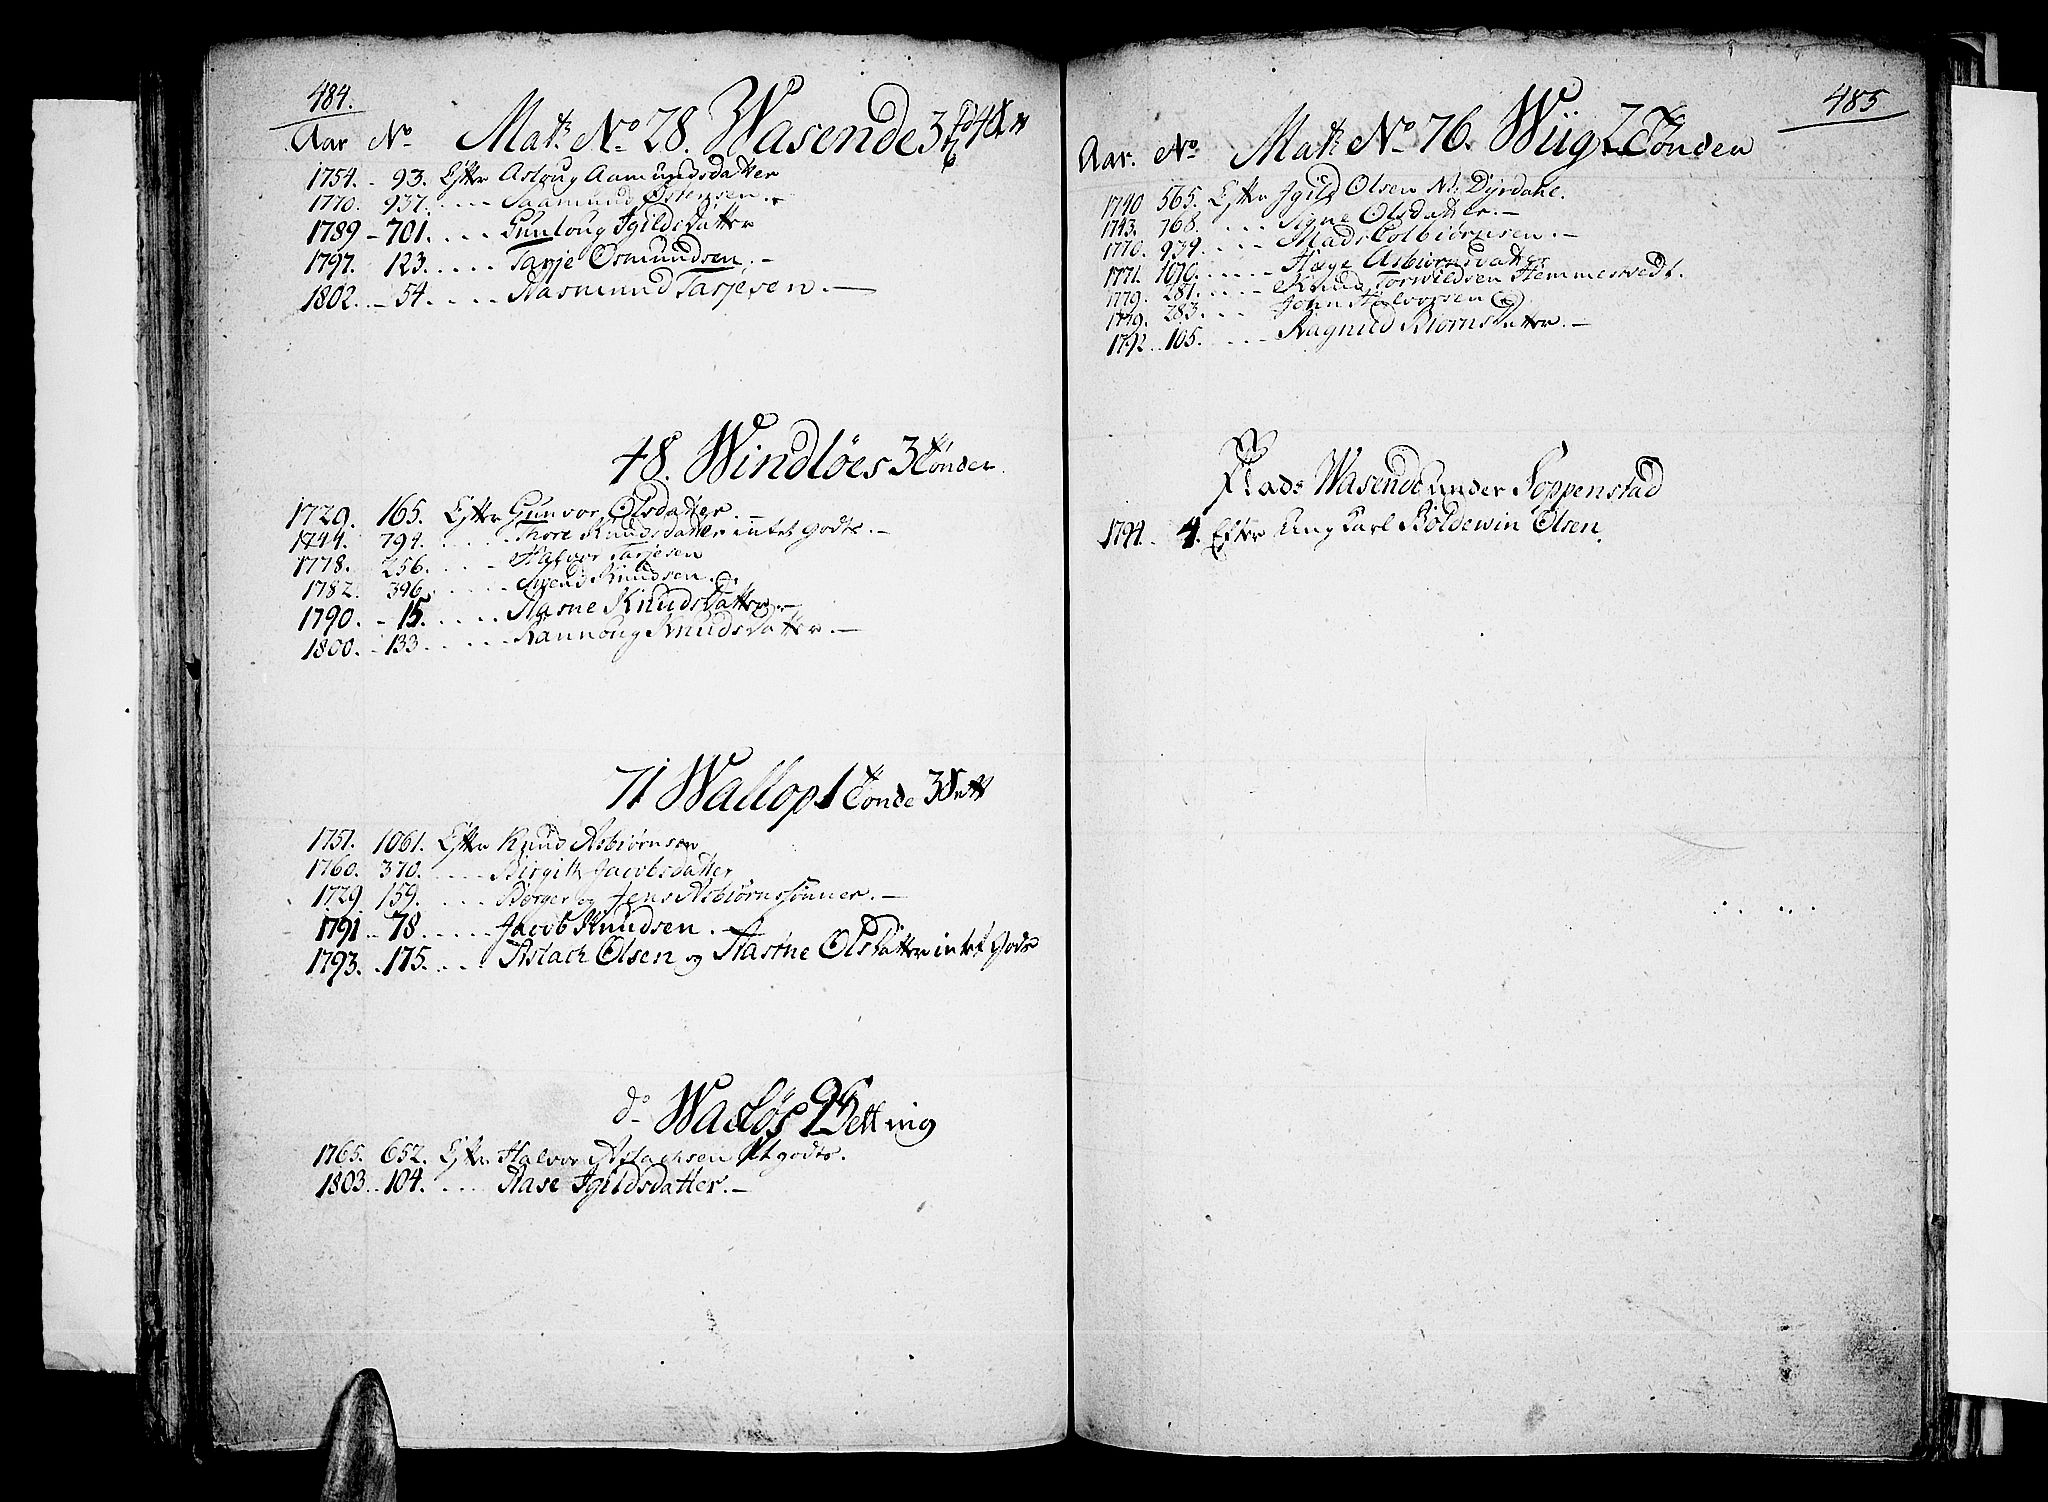 484.
Aar No Matr No 28. Wasende 3
1754. - 93. Efter Asloug Aamundsdatter
1770. 937. . . . . Saamund Østensen. -
1789 - 701. . . . . Gunloug Igildsdatter
1797. 123. . . . . . Tarje Osmundsen. -
1802. - 54. . . . . Aasmund Tarjesen. -
48. Windløes 3 Tønder.
1729. 165. Efter Gunvor Olsdatter
1744. 794. . . . . Thore Knudsdatter intet godts. -
1778. 256. . . . . Halvor Tarjesen
1782. 396. . . . . . Swend Knudsen.
1790. - 15. . . . . . Aasne Knudsdatter -
1800. - 133 . . . . . Rannoug Knudsdatter. -
71 Wallop 1 Tønde 3 Sett
1751. 1061. Efter Knud Asbiørnsen
1760. 370. . . . . Birgith Jacobsdatter
1729 159. . . . . Børger og Jens Asbiørnssønner. -
1791 - 78. . . . . . Jacob Knudsen. -
1793. - 175. . . . . Aslach Olsen og Aasne Olsdatter intet Gods
do Wasløs 2 Setting
1765. 652. Efter Halvor Aslachsen godts.
1803. - 104. . . . . Aase Igildsdatter. -
485
Aar. No Matr No 76. Wiig 2 Tønder
1740 565. Efter Igild Olsen N. Dyrdahl.
1743. 768. . . . . Signe Olsdatter. -
1770. 939. . . . . Mads Colbiørnsen. -
1771. 1010. . . . . . Hæge Asbiørnsdatter
1779. 281. . . . . Knud Torwildsen Hemmestvedt.
1779. 283. . . . John Halvorsen
1792 - 105. . . . . Ragnild Biørnsdatter. -
Plads Wasende under Loppenstad
1794. - 4. Efter Ung Karl Boldewin Olsen.